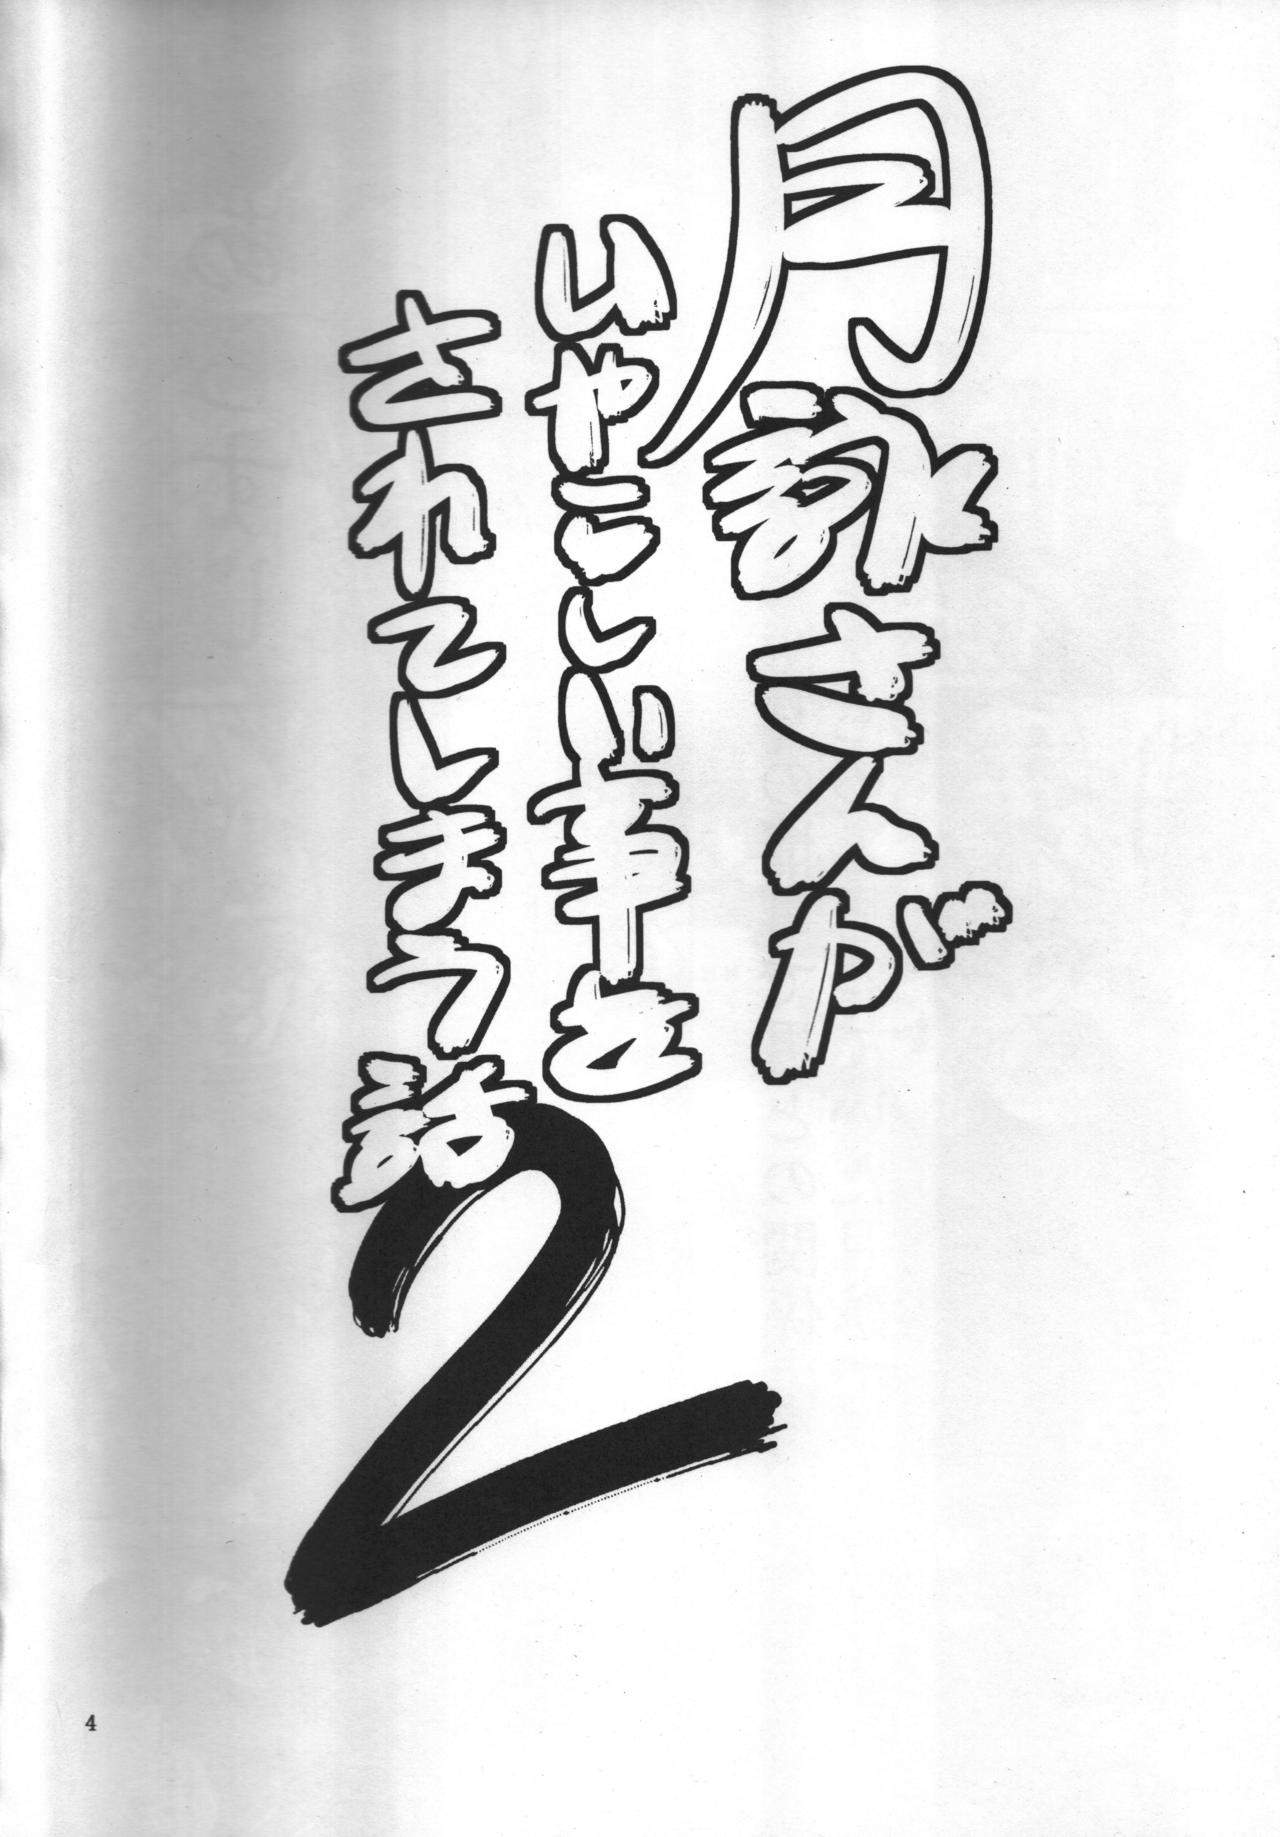 月詠さんが
いやらしい事を
されてしまう話
2
4